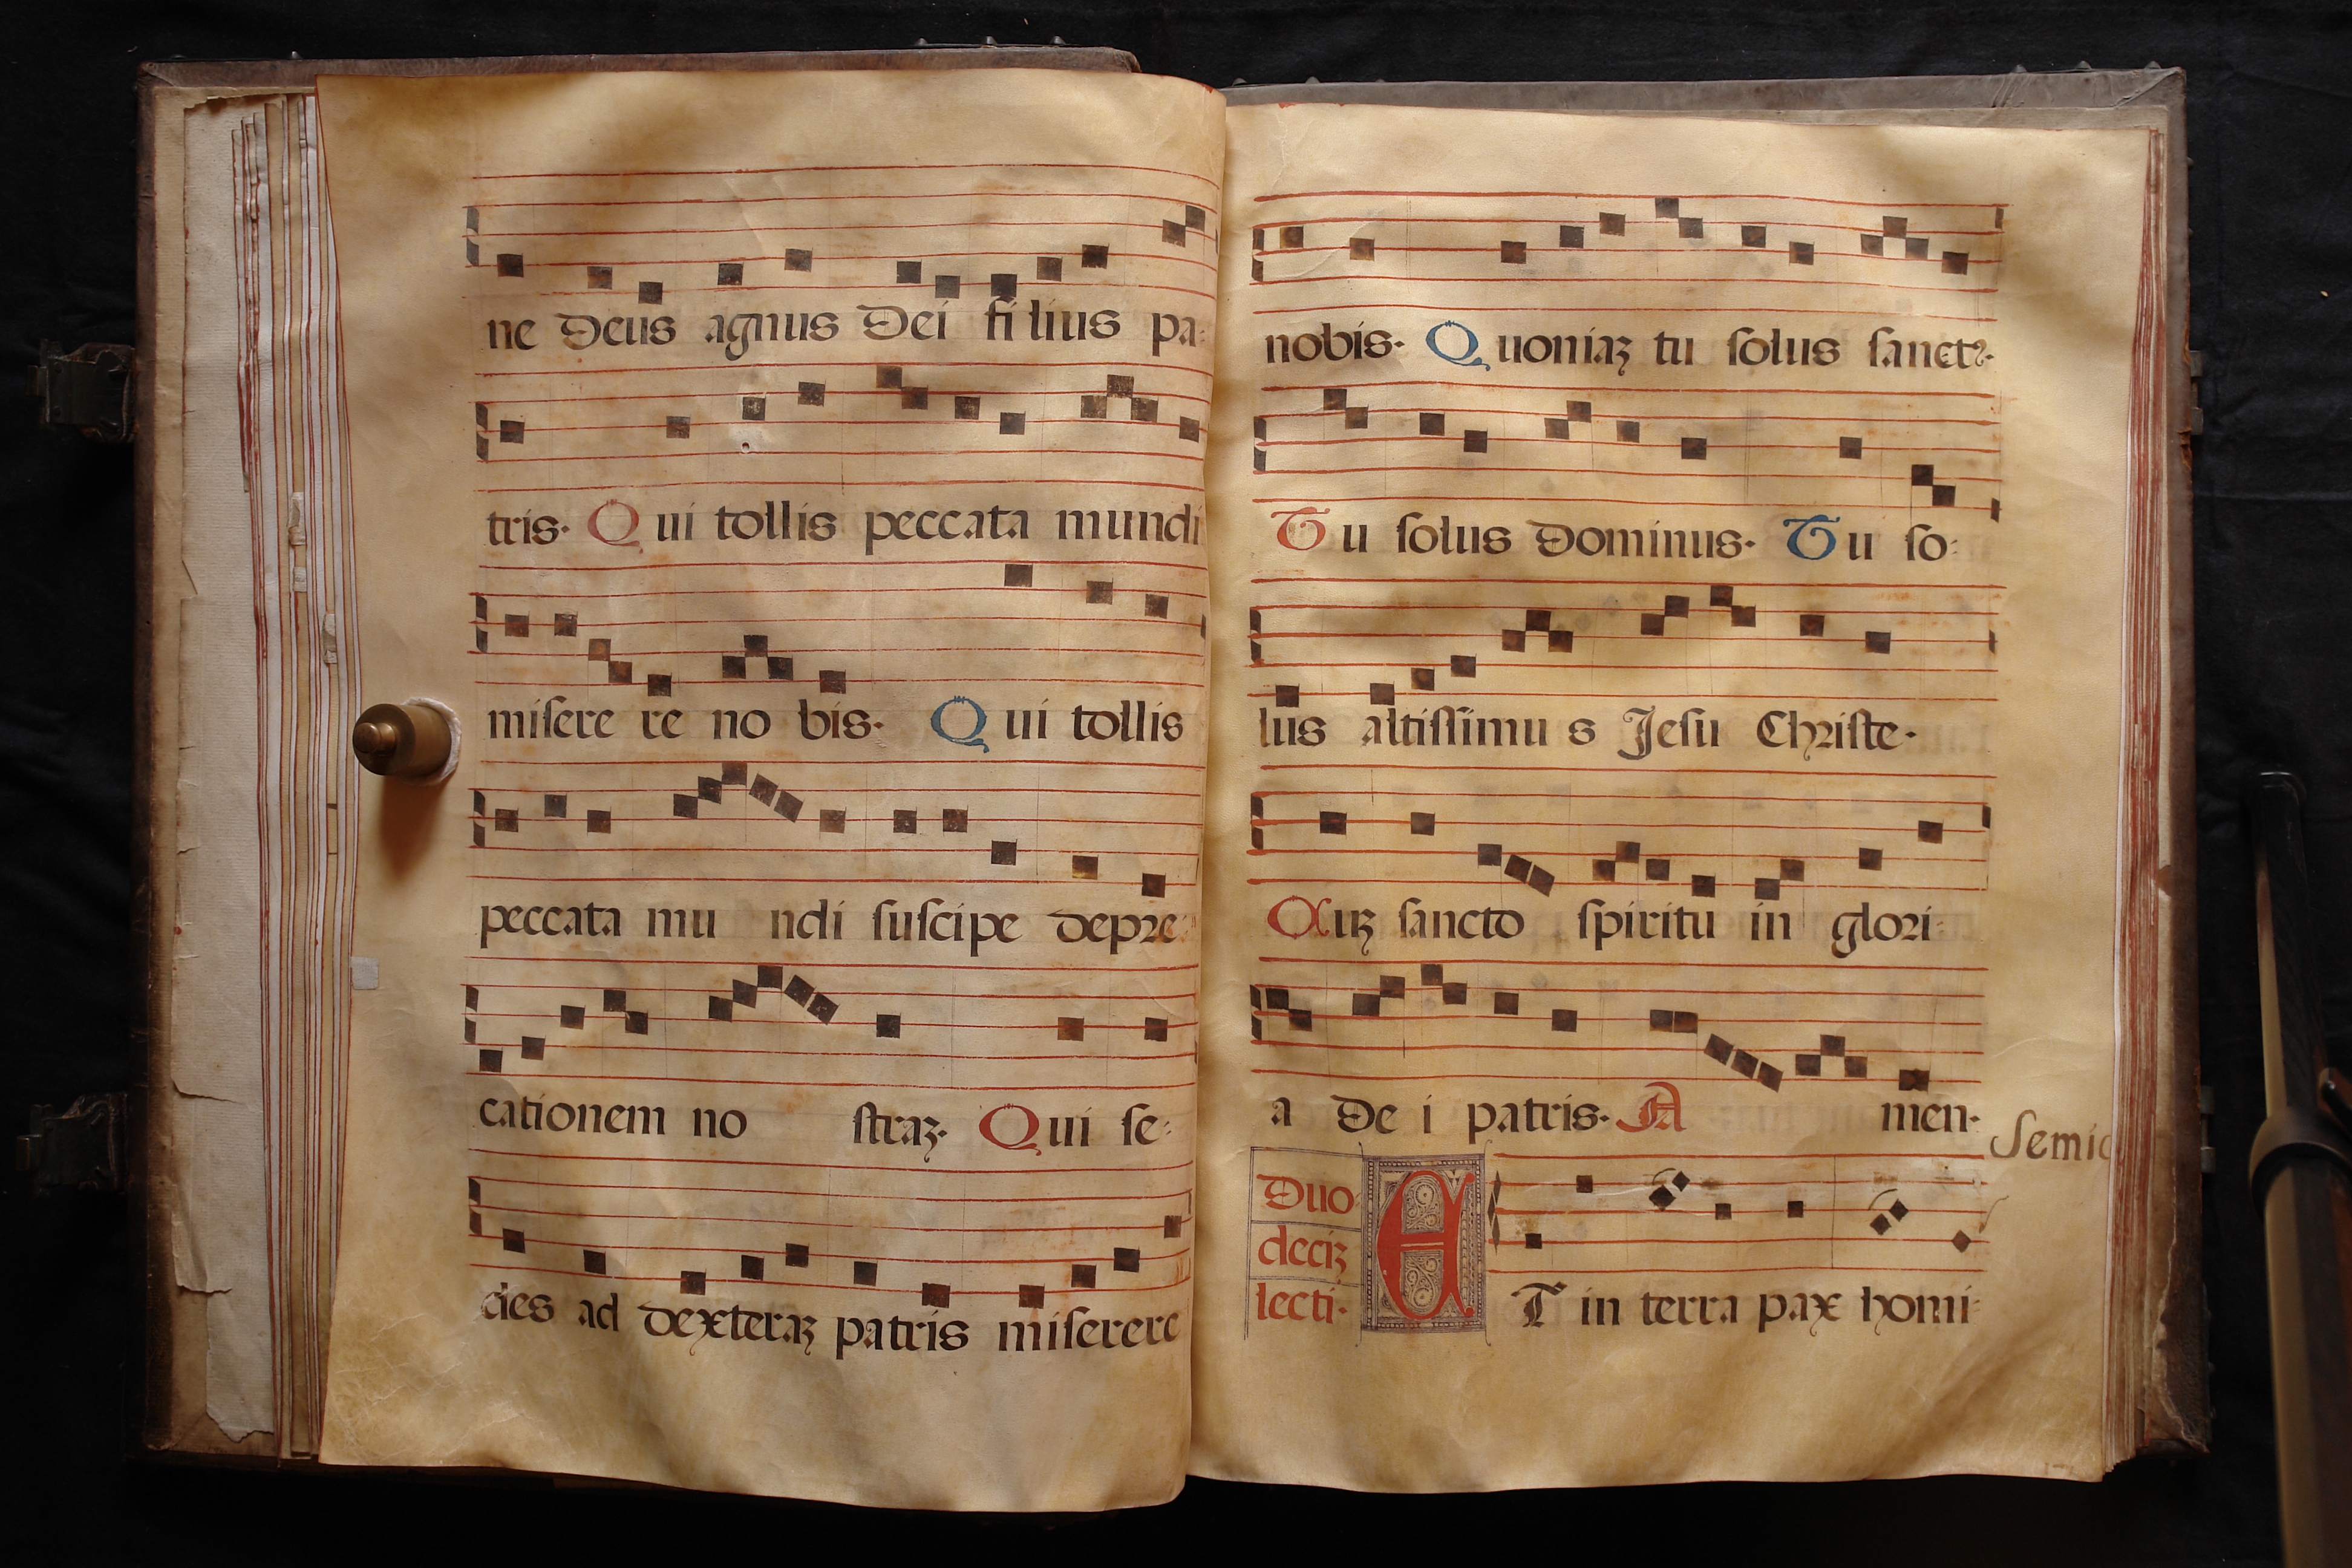 ne Deus agnus Dei filius pa:
tris. Qui tollis peccata mundi
miſere re no bis. Qui tollis
peccata mu ndi ſuſcipe depre:
cationem no ſtraꝫ. Qui ſe:
des ad dexteraꝫ patris miſerere
nobis. Quoniaꝫ tu ſolus ſanctꝰ.
Tu ſolus Dominus. Tu ſo:
lus altiſſimu s Jeſu Chriſte.
Cuꝫ ſancto ſpiritu in glori:
a De i patris. A men.
Semid
Duo
deciꝫ
lecti.
ET in terra pax homi: